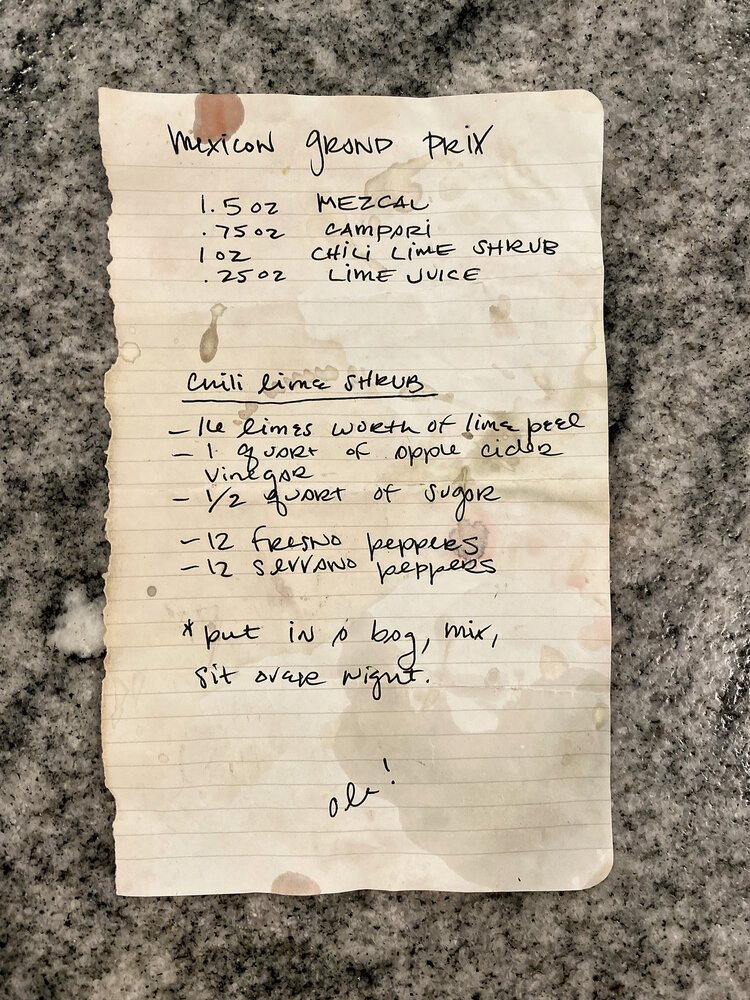 Mexican Grand Prix
1.5 oz MEZCAL
.75 oz CAMPARI
1 oz CHILI LIME SHRUB
.25 oz LIME JUICE
Chili lime SHRUB
- 16 limes worth of lime peel
- 1 quart of apple cider
vinegar
- 1/2 quart of sugar
- 12 fresno peppers
- 12 serrano peppers
* put in a bag, mix,
sit over night.
ole!